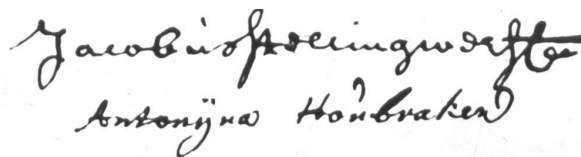 Jacobus Stellingwerff
Antonÿna Houbraken